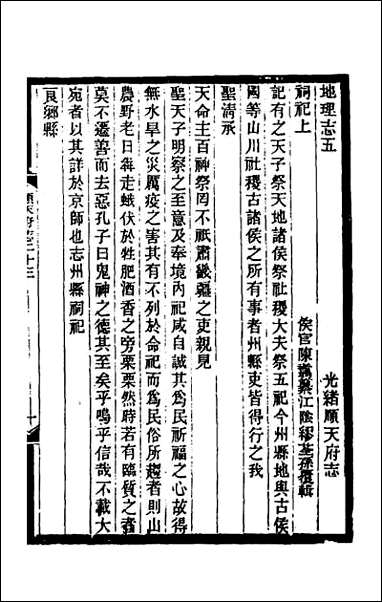 地理志五
光緒順天府志
祠祀上
侯官陳衍纂江陰繆荃孫覆輯
記有之天子祭天地諸侯祭社稷大夫祭五祀今州縣地與古侯
國等山川社稷古諸侯之所有事者州縣吏皆得行之我
聖清承
天命主百神祭罔不祇肅畿疆之吏親見
聖天子明察之至意及奉境內祀咸自誠其爲民祈福之心故得
無水旱之災厲疫之害其有不列於命祀而爲民俗所趨者則山
農野老日犇走蛾伏於牲肥酒香之旁栗栗然時若有臨質之者
莫不遷善而去惡孔子曰鬼神之德其至矣乎嗚乎信哉不載大
宛者以其詳於京師也志州縣祠祀
良鄉縣
順天府志二十三